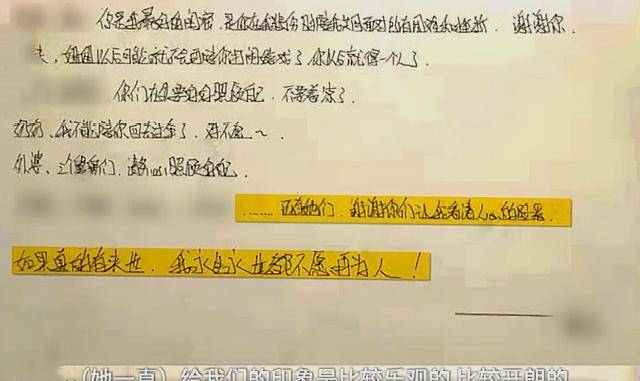 你是我最好的闺密,是你在我悲伤时陪我共同面对所有困难和挫折。谢谢你
,妈妈以后可能就不会再陪你打闹嬉戏了你以后就像一个人了.
你们在要好好照顾自己,不要着凉了.
奶奶、我不能陪你回去过年了.对不起~.
外婆、三个舅舅们、请 照顾好自己.
……还有她们,谢谢你们让我看清人心的险恶.
如果真的有来世.我永生永世都不愿再为人!
(她一直)给我们的印象是比较乐观的 比较开朗的